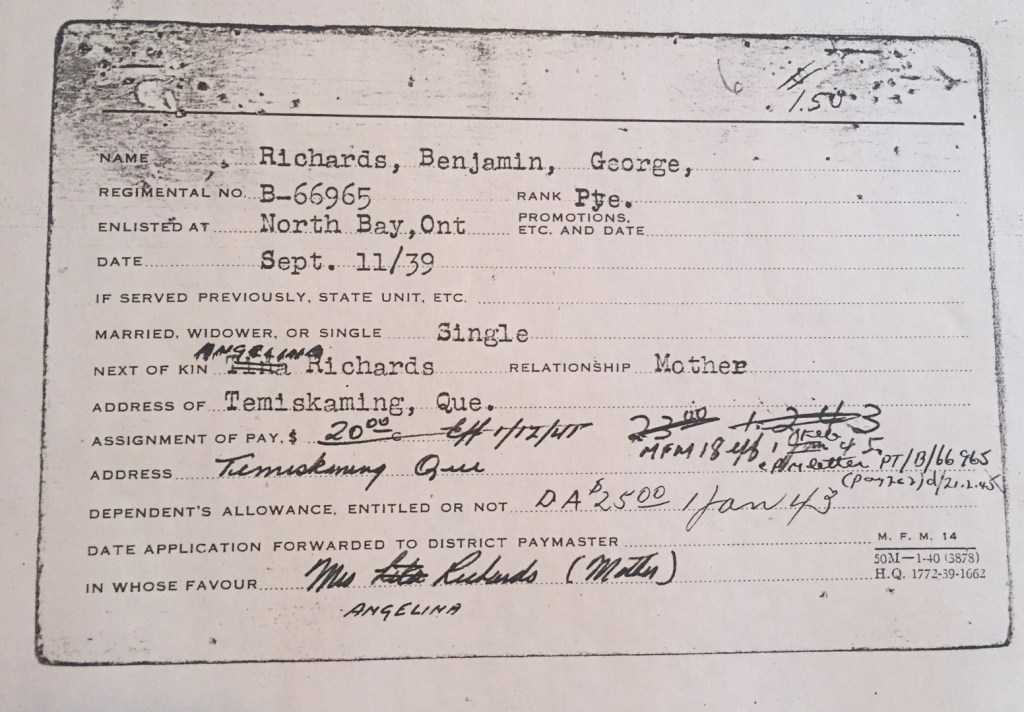 6 $ 1.50
NAME Richards, Benjamin, George,
REGIMENTAL NO. B-66965 RANK Pte.
ENLISTED AT North Bay, Ont PROMOTIONS, ETC. AND DATE
DATE Sept. 11/39
IF SERVED PREVIOUSLY, STATE UNIT, ETC.
MARRIED, WIDOWER, OR SINGLE Single
ANGELINA
NEXT OF KIN Tina Richards RELATIONSHIP Mother
ADDRESS OF Temiskaming, Que.
ASSIGNMENT OF PAY, $ 20.00 Eff 1/12/41 23.00 1.2.43
MFM 18 eff 1 Feb 45
ADDRESS Temiskaming Que letter PT/B/66965
(Pay2e)d/21.2.45
DEPENDENT'S ALLOWANCE, ENTITLED OR NOT DA $25.00 1 Jan 43
DATE APPLICATION FORWARDED TO DISTRICT PAYMASTER
M. F. M. 14
50M—1-40 (3878)
H.Q. 1772-39-1662
IN WHOSE FAVOUR Mrs Richards (Mother)
ANGELINA